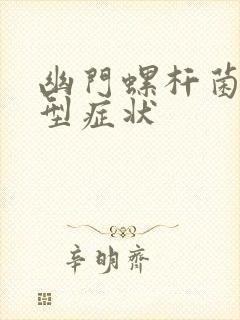 幽門螺杆菌
型症状
辛明齊